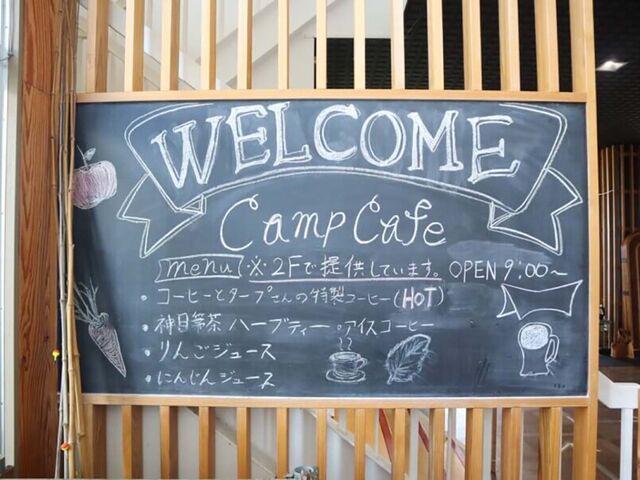 WELCOME
Camp Cafe
menu ※2Fで提供しています。 OPEN 9:00~
・コーヒーとタープさんの特製コーヒー(HOT)
・神目箒茶 ハーブティー ・アイスコーヒー
・りんごジュース
・にんじんジュース